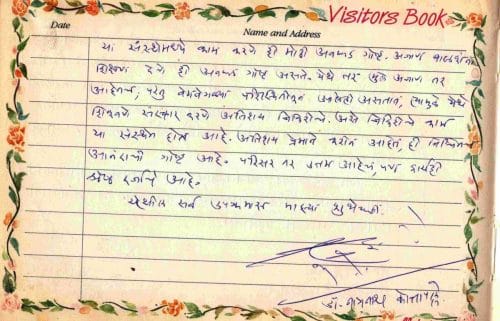 Visitors Book
Date
Name and Address
या संस्थेमध्ये काम करणे ही मोठी अवघड गोष्ट. अजाण बालकांना
शिक्षण देणे ही अवघड गोष्ट असते. येथे तर मुले अजाण तर
आहेतच, परंतु वेगवेगळ्या परिस्थितीतून आलेली असतात, त्यामुळे येथे
शिकवणे संस्कार करणे अतिशय जिकिरीचे. असे जिकिरीचे काम
या संस्थेत होत आहे. अतिशय प्रेमाने करीत आहेत, ही निश्चितच
आनंदाची गोष्ट आहे. परिसर तर उत्तम आहेच, पण कार्यही
श्रेष्ठ दर्जाचे आहे.
येथील सर्व उपक्रमास माझ्या शुभेच्छा.
डॉ. नागनाथ कोत्तापल्ले